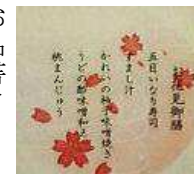 お花見御膳
五目いなり寿司
すまし汁
かれいの柚子味噌焼き
うどの酢味噌和え
桃まんじゅう